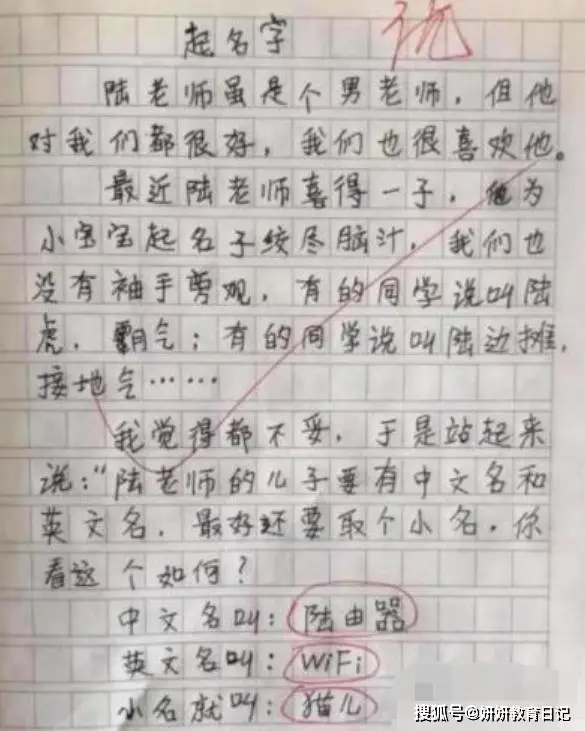 起名字 优
陆老师虽是个男老师，但他
对我们都很好，我们也很喜欢他。
最近陆老师喜得一子，他为
小宝宝起名子绞尽脑汁，我们也
没有袖手剪观，有的同学说叫陆
虎，霸气；有的同学说叫陆边摊，
接地气……
我觉得都不妥，于是站起来
说：“陆老师的儿子要有中文名和
英文名，最好还要取个小名，你
看这个如何？
中文名叫：陆由器
英文名叫：WiFi
小名就叫：猫儿
搜狐号@妍妍教育日记